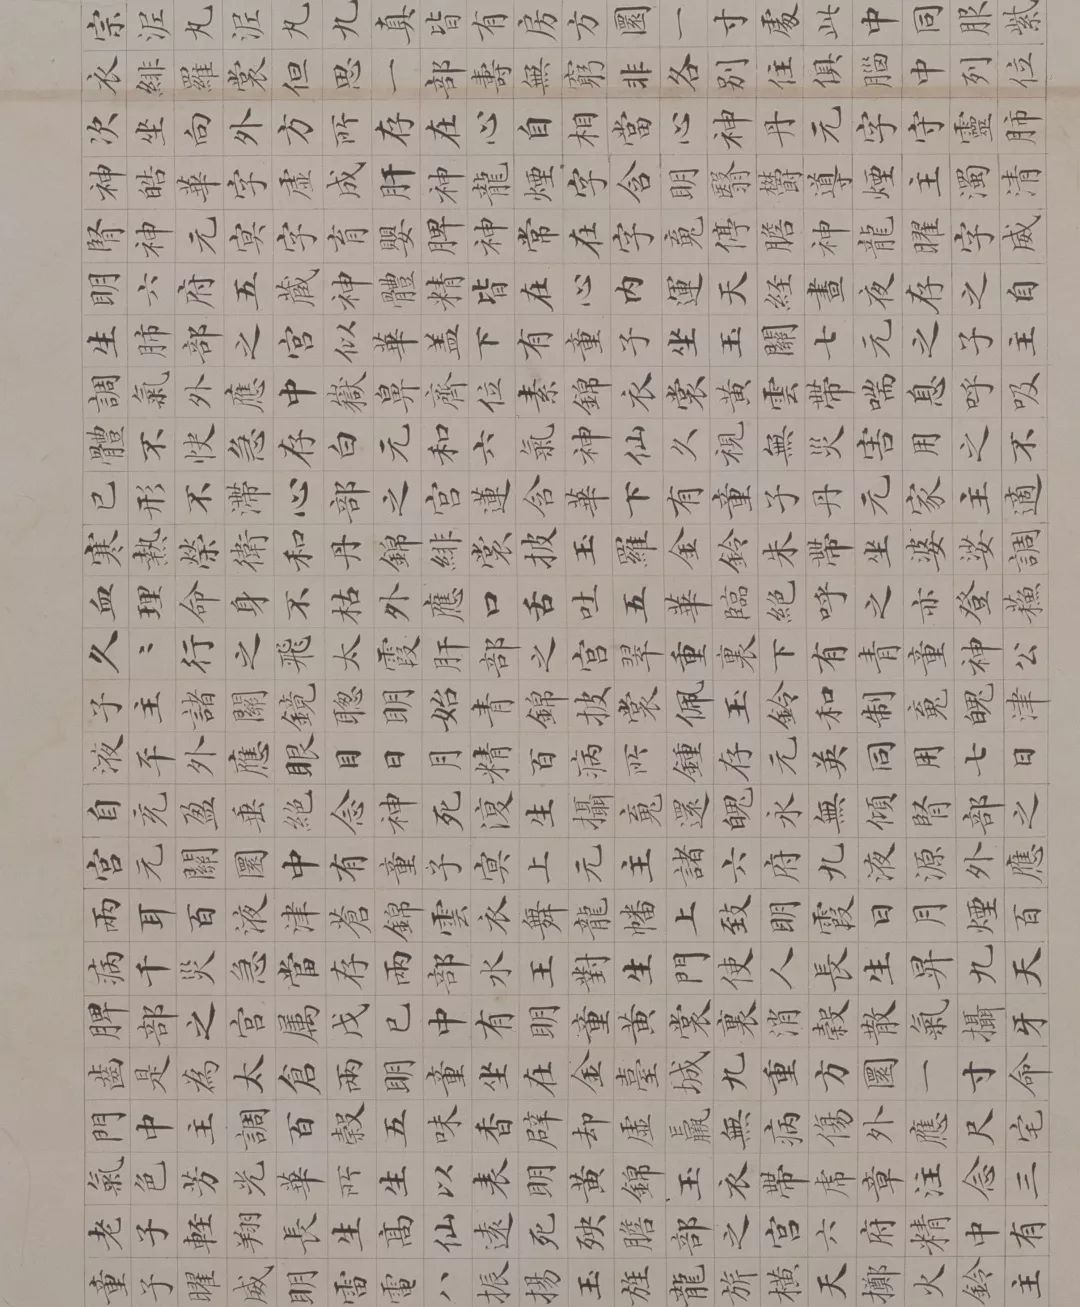 宗泥丸泥丸九真皆有房方圓一寸處此中同服紫
衣緋羅裳但思一部壽無窮非各別住俱腦中列位
次坐向外方所存在心自相當心神丹元字守靈肺
神皓華字虛成肝神龍煙字含明翳欝導煙主濁清
腎神元冥字育嬰脾神常在字䰟停膽神龍曜字威
明六府五蔵神體精皆在心內運天経晝夜存之自
生肺部之宮似華盖下有童子坐玉關七元之子主
調氣外應中嶽鼻齊位素錦衣裳黃雲帶喘息呼吸
體不快急存白元和六氣神仙久視無災害用之不
已形不滯心部之宮蓮含華下有童子丹元家主適
寒熱榮衛和丹錦緋裳披玉羅金鈴朱帶坐婆娑調
血理命身不枯外應口舌吐五華臨絕呼之亦登蘓
久〻行之飛太霞肝部之宮翠重裏下有青童神公
子主諸關鏡聦明始青錦披裳佩玉鈴和制䰟魄津
液平外應眼目日月精百病所鍾存元英同用七日
自充盈垂絕念神死復生攝䰟還魄永無傾腎部之
宮元關圓中有童子冥上元主諸六府九液源外應
兩耳百液津蒼錦雲衣舞龍幡上致明霞日月煙百
病千災急當存兩部水王對生門使人長生昇九天
脾部之宮属戊已中有明童黃裳裏消穀散氣攝牙
齒是為太倉兩明童坐在金臺城九重方圓一寸命
門中主調百穀五味香辟却虛羸無病傷外應尺宅
氣色芳光華所生以表明黃錦玉衣帶虎章注念三
老子軽翔長生高仙遠死殃膽部之宮六府精中有
童子曜威明雷電八振揚玉旌龍旂橫天擲火鈴主